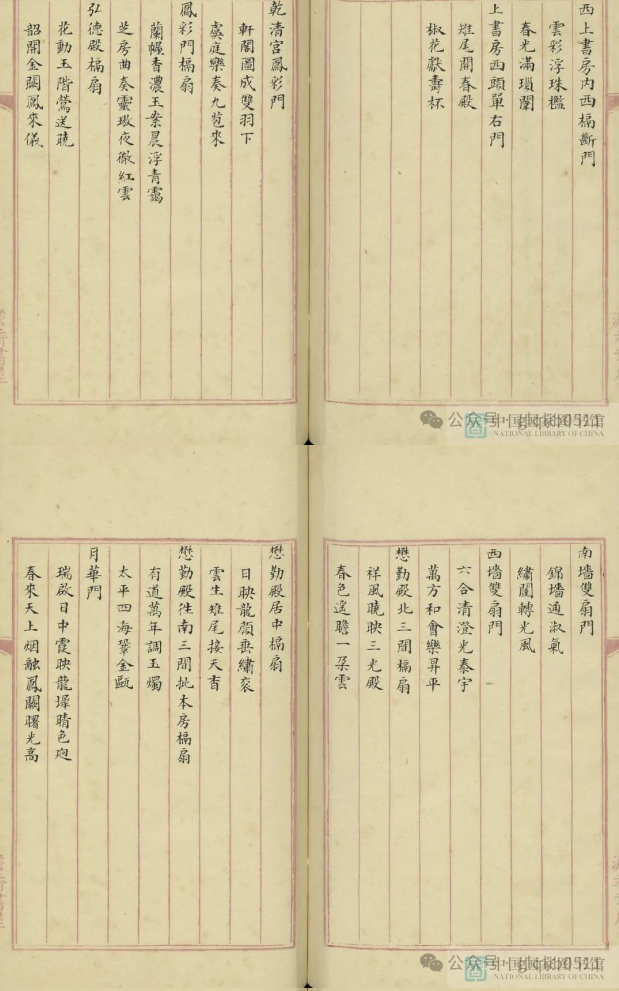 西上書房內西槅斷門
雲彩浮珠檻
春光滿瑣闈
上書房西頭單右門
雉尾開春殿
椒花獻壽杯
乾清宮鳳彩門
軒閣圖成雙羽下
虞庭樂奏九苞來
鳳彩門槅扇
蘭幄香濃玉案晨浮青靄
芝房曲奏靈璈夜徹紅雲
弘德殿槅扇
花動玉階鶯送曉
韶開金闕鳳來儀
公众号
中国国家图书馆
NATIONAL LIBRARY OF CHINA
南墻雙扇門
錦墻通淑氣
繡闥轉光風
西墻雙扇門
六合清澄光泰宇
萬方和會樂昇平
懋勤殿北三間槅扇
祥風曉映三光殿
春色遙瞻一朵雲
懋勤殿居中槅扇
日映龍顏垂繡袞
雲生雉尾接天香
懋勤殿徃南三間批本房槅扇
有道萬年調玉燭
太平四海鞏金甌
月華門
瑞啟日中霞映龍墀晴色迥
春來天上烟融鳳闕曙光高
公众号
中国国家图书馆
NATIONAL LIBRARY OF CHINA